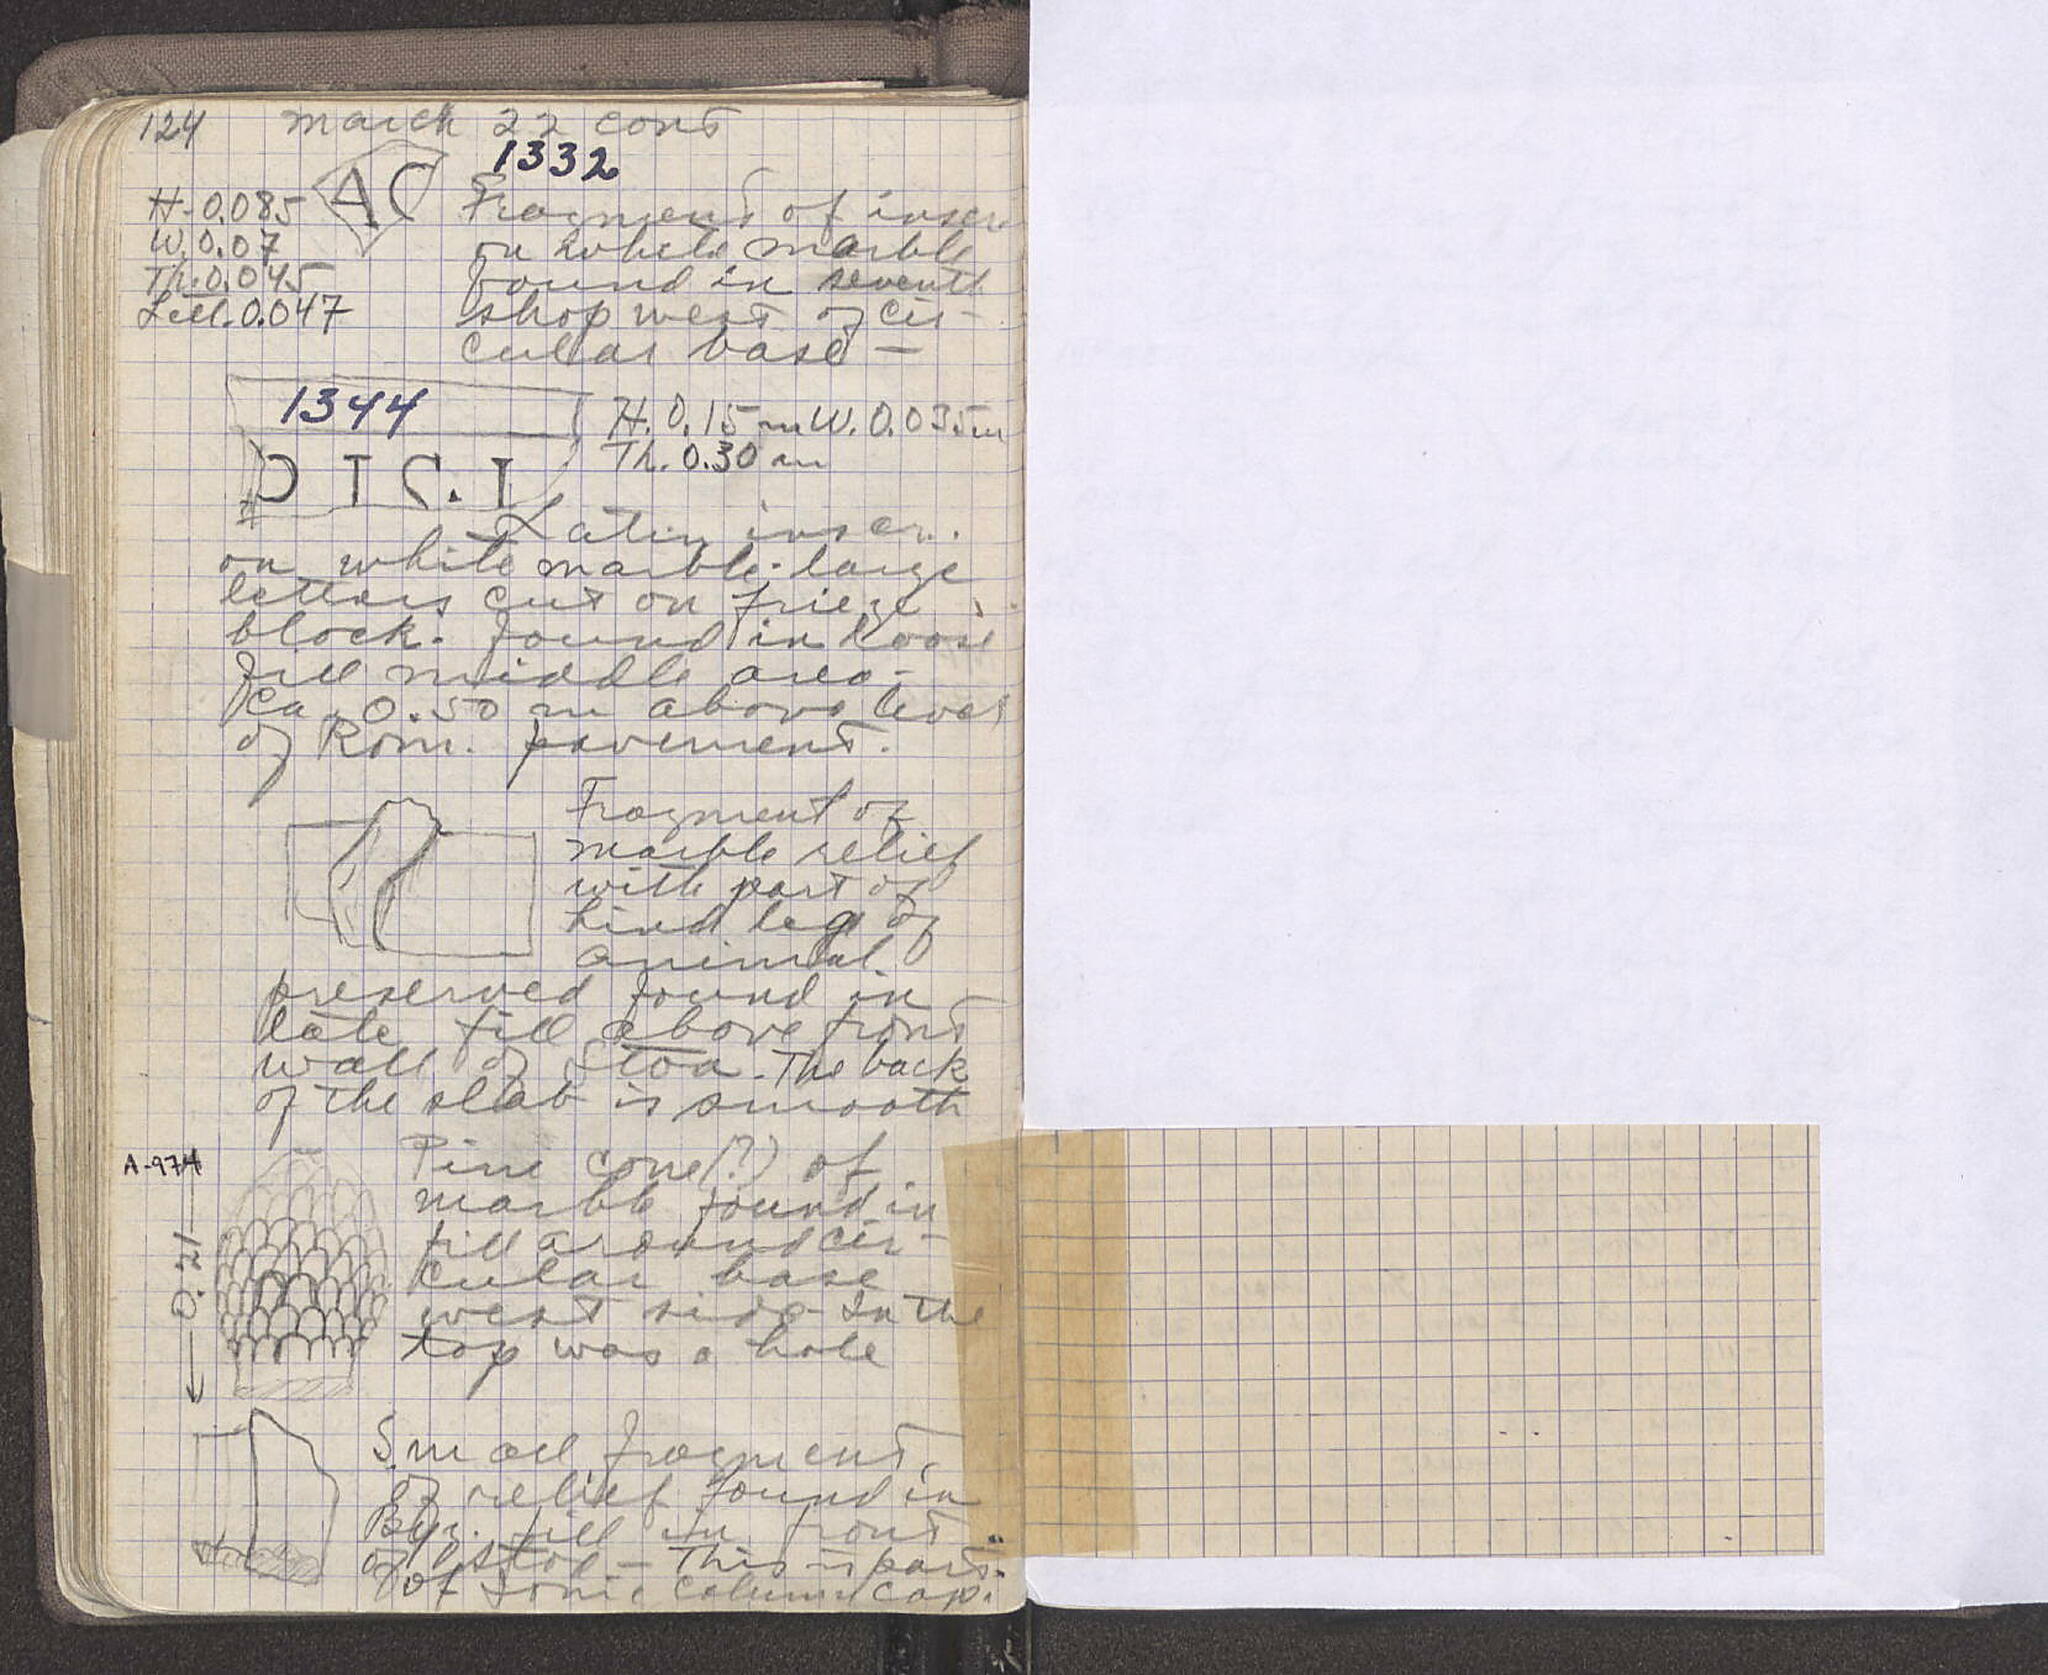 124 March 22 cont
1332
AC
H. 0.085
W. 0.07
Th. 0.045
Lett. 0.047
Fragment of inscr
on white marble
found in seventh
shop west of cir-
cular base —
1344
H. 0.15 m W. 0.035 m
Th. 0.30 m
Latin inscr.
on white marble - large
letters cut on frieze
block. Found in loose
fill middle area -
Ca. 0.50 m above level
of Rom. pavement.
Fragment of
marble relief
with part of
hind leg of
animal
preserved found in
late fill above front
wall of Stoa. The back
of the slab is smooth
A-974
0.21
Pine cone(?) of
marble found in
fill around cir-
cular base
west side - In the
top was a hole
Small fragment
of relief found in
Byz. fill in front
of Stoa - This is part
of Ionic column cap.